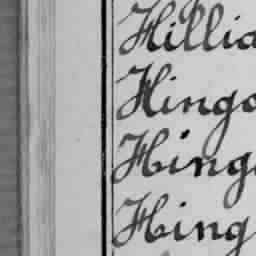 Hillia
Hingo
Hinge
Hing